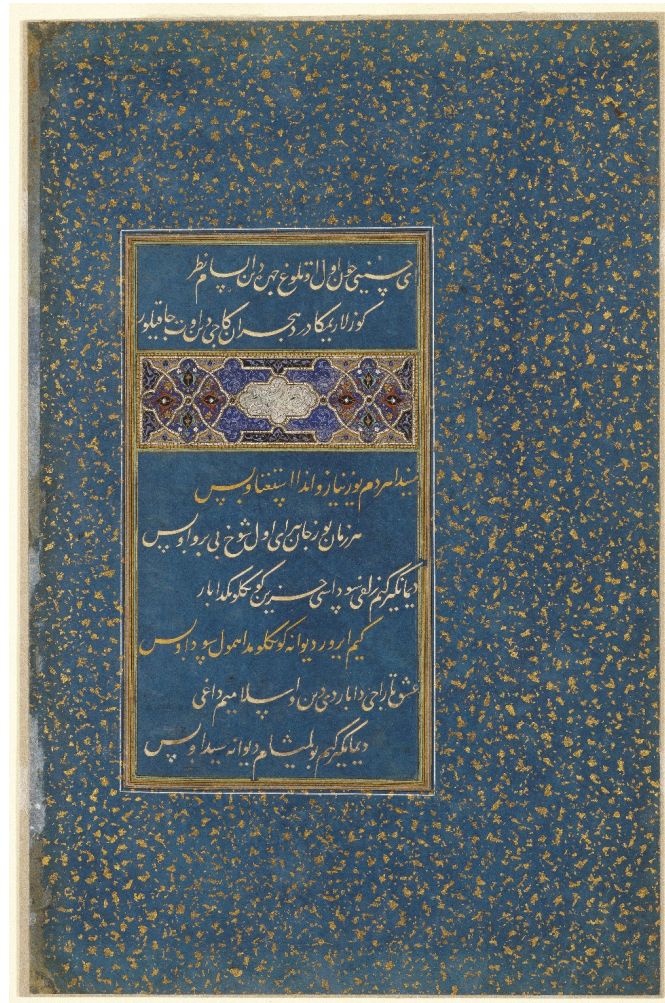 ای حسینی چون اول نظر
کوزلاریمکا درد هجران دین اوت چاقیلور
هر دم یوز نیاز و اندا استغنا و بس
هر زمان یوز جان اول شوخ بی پروا و بس
دیمانکیز کیم زلفی سوداسی حزین کونکلومدا بار
کیم ایرور دیوانه کونکلومدا همول سودا و بس
عشق تاراجی دا باردی دین و اسلامیم داغی
دیمانکیز کیم بولمیشام دیوانه شیدا و بس